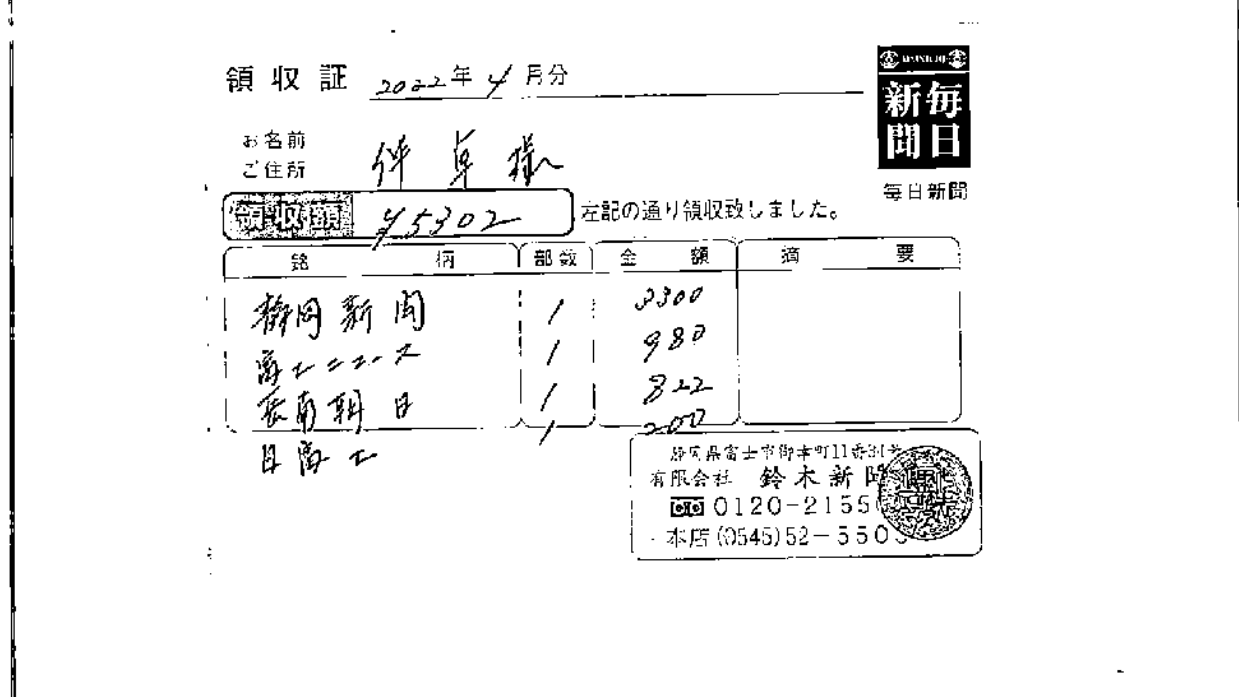 領収証 2022年4月分
毎日新聞
毎日新聞
お名前
ご住所
伴 卓 様
領収額 ¥5302
左記の通り領収致しました。
銘柄 部数 金額 摘要
静岡新聞 1 3300
富士ニュース 1 980
岳南朝日 1 822
日富士 1 200
静岡県富士市御幸町11番31号
有限会社 鈴木新聞
0120-2155
本店(0545)52-550